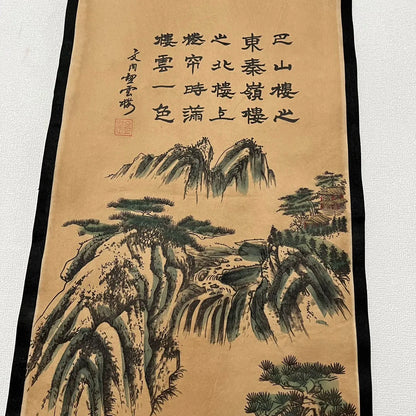 巴山樓之
東秦嶺樓
之北樓上
捲帘時滿
樓雲一色
文同望雲樓